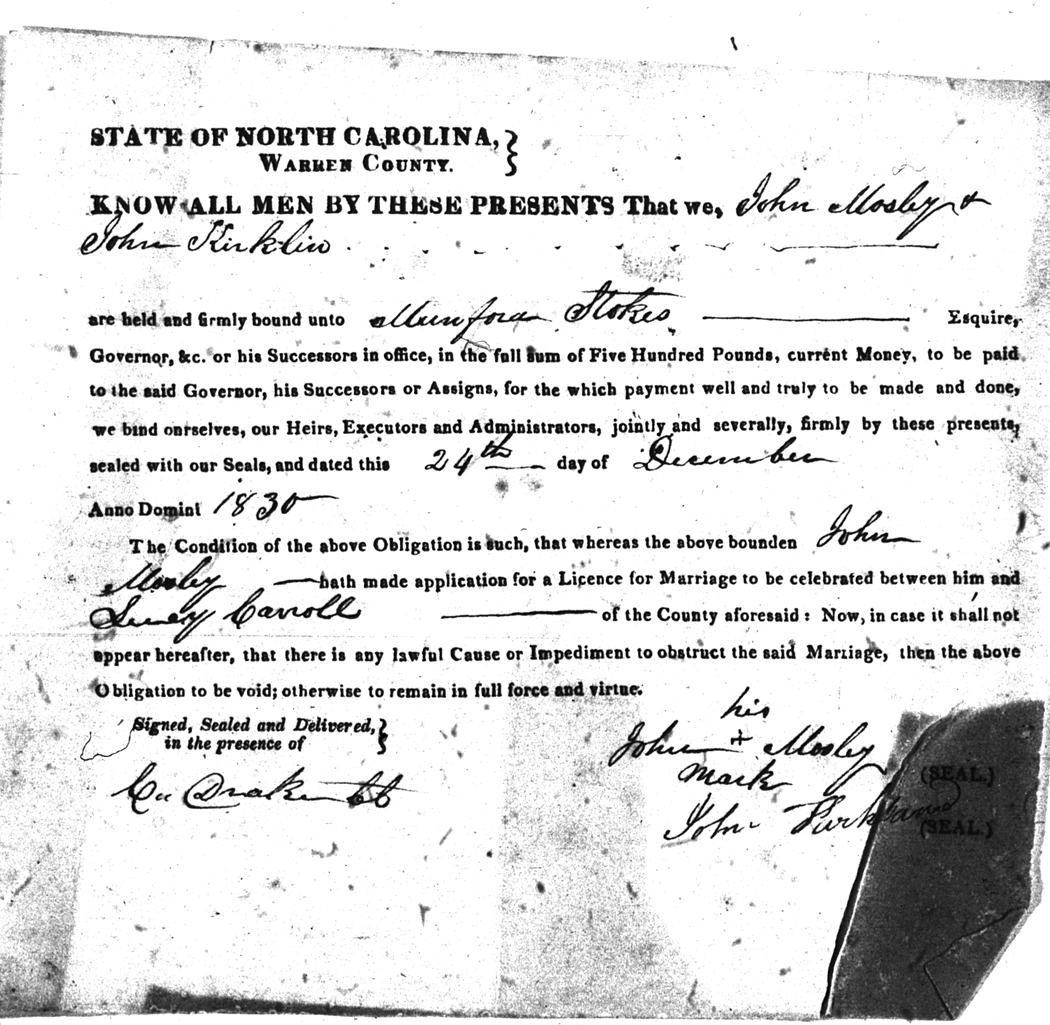 STATE OF NORTH CAROLINA,
WARREN COUNTY.
KNOW ALL MEN BY THESE PRESENTS That we, John Mosley &
John Kirklin
are held and firmly bound unto Munford Stokes Esquire,
Governor, &c. or his Successors in office, in the full sum of Five Hundred Pounds, current Money, to be paid
to the said Governor, his Successors or Assigns, for the which payment well and truly to be made and done,
we bind ourselves, our Heirs, Executors and Administrators, jointly and severally, firmly by these presents,
sealed with our Seals, and dated this 24th day of December
Anno Domini 1830
The Condition of the above Obligation is such, that whereas the above bounden John
Mosley hath made application for a Licence for Marriage to be celebrated between him and
Carroll of the County aforesaid: Now, in case it shall not
appear hereafter, that there is any lawful Cause or Impediment to obstruct the said Marriage, then the above
Obligation to be void; otherwise to remain in full force and virtue.
Signed, Sealed and Delivered,
in the presence of
his
John + Mosley (SEAL.)
mark
Drake
John (SEAL.)